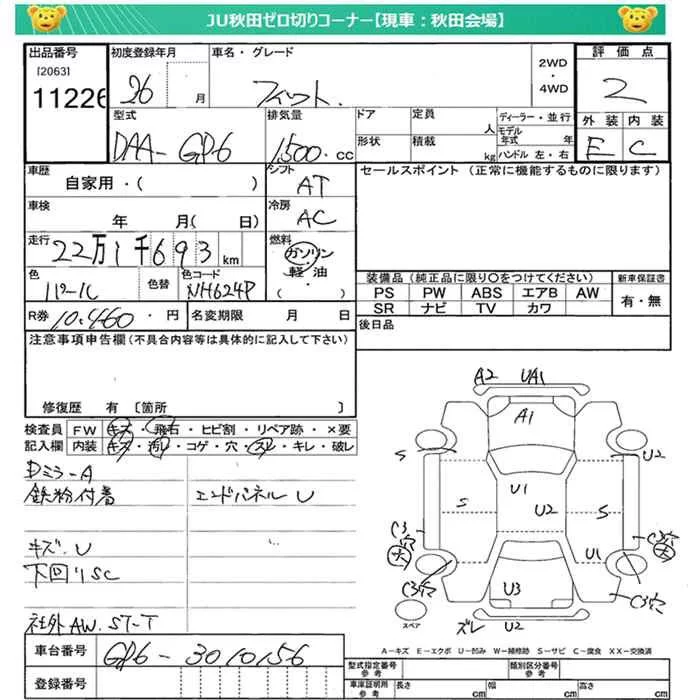 JU秋田ゼロ切りコーナー【現車：秋田会場】
出品番号 初度登録年月 車名・グレード 評価点
[2063]
11226 26 月 フィット. 2WD・4WD 2
型式 排気量 ドア 定員 人 ディーラー・並行 外装 内装
DAA-GP6 1,500.cc 形状 積載 kg モデル年式 年 ハンドル 左・右 E C
車歴 シフト セールスポイント（正常に機能するものに限ります）
自家用・( ) AT
車検 冷房
年 月( 日) AC
走行 燃料
22万1千693km ガソリン・軽油・( )
色 色替 色コード 装備品（純正品に限り○をつけてください） 新車保証書
パール NH624P PS PW ABS エアB AW 有・無
SR ナビ TV カワ
R券 10.460・円 名変期限 月 日 後日品
注意事項申告欄（不具合内容等は具体的に記入して下さい）
修復歴 有 〔箇所 〕
検査員 FW キズ・飛石・ヒビ割・リペア跡・×要
記入欄 内装 キズ・汚レ・コゲ・穴・スレ・キレ・破レ
Dミラ-A
鉄粉付着 エンドパネル U
キズ.U
下回りSC
社外AW. ST-T
車台番号 GP6-3010156
登録番号
A2 UA1
A1
S U2
U1
S U2 S
C3穴 大 C3穴 大
U1
C3穴 C3穴
U3
スペア ズレ U2
A－キズ E－エクボ U－凹み W－補修跡 S－サビ C－腐食 XX－交換済
型式指定番号 参考 類別区分番号 参考
車庫証明用 参考 長さ cm 幅 cm 高さ cm